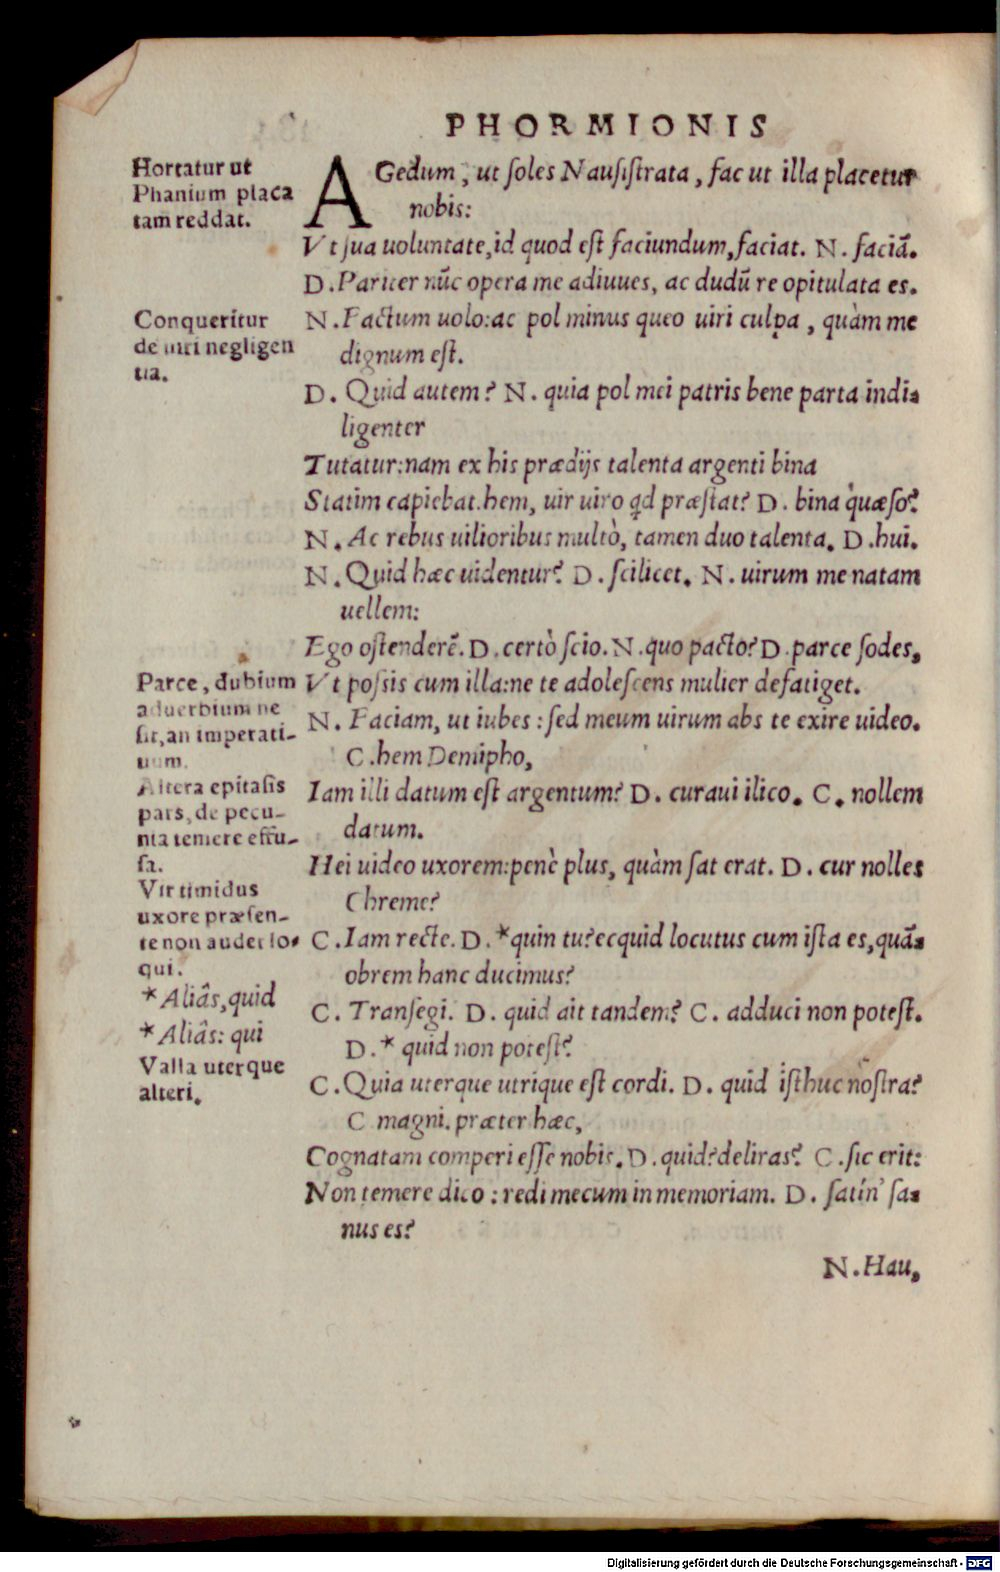 PHORMIONIS
Hortatur ut
Phanium placa
tam reddat.
AGedum, ut ſoles Nauſiſtrata, fac ut illa placetur
nobis:
Vt ſua uoluntate, id quod eſt faciundum, faciat. N. faciā.
D. Pariter nūc opera me adiuues, ac dudū re opitulata es.
Conqueritur
de uiri negligen
tia.
N. Factum uolo: ac pol minus queo uiri culpa, quàm me
dignum eſt.
D. Quid autem? N. quia pol mei patris bene parta indi-
ligenter
Tutatur: nam ex his prædijs talenta argenti bina
Statim capiebat. hem, uir uiro qd præſtat? D. bina quæſo?
N. Ac rebus uilioribus multò, tamen duo talenta. D. hui.
N. Quid hæc uidentur? D. ſcilicet. N. uirum me natam
uellem:
Ego oſtenderē. D. certò ſcio. N. quo pacto? D. parce ſodes,
Parce, dubium
aduerbium ne
ſit, an imperati-
uum.
Vt poſsis cum illa: ne te adoleſcens mulier defatiget.
N. Faciam, ut iubes: ſed meum uirum abs te exire uideo.
C. hem Demipho,
Altera epitaſis
pars, de pecu-
nia temere effu-
ſa.
Iam illi datum eſt argentum? D. curaui ilico. C. nollem
datum.
Hei uideo uxorem: penè plus, quàm ſat erat. D. cur nolles
Chreme?
Vir timidus
uxore præſen-
te non audet lo-
qui.
C. Iam recte. D. *quin tu? ecquid locutus cum iſta es, quā-
obrem hanc ducimus?
*Aliâs, quid
*Aliâs: qui
C. Tranſegi. D. quid ait tandem? C. adduci non poteſt.
D. * quid non poteſt?
Valla uterque
alteri.
C. Quia uterque utrique eſt cordi. D. quid iſthuc noſtra?
C magni. præter hæc,
Cognatam comperi eſſe nobis. D. quid? deliras? C. ſic erit:
Non temere dico: redi mecum in memoriam. D. ſatin' ſa-
nus es?
N. Hau,
Digitalisierung gefördert durch die Deutsche Forschungsgemeinschaft - DFG